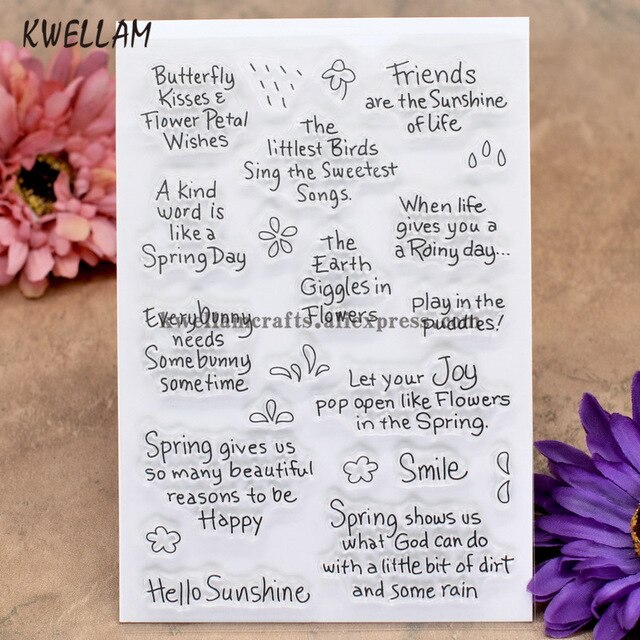 KWELLAM
Butterfly
Kisses &
Flower Petal
Wishes
Friends
are the Sunshine
of life
The
littlest Birds
Sing the Sweetest
Songs.
A kind
word is
like a
Spring Day
When life
gives you a
a Rainy day...
The
Earth
Giggles in
Flowers
play in the
puddles!
kwellamcrafts.aliexpress.com
Everybunny
needs
Somebunny
sometime
Let your Joy
pop open like Flowers
in the Spring.
Spring gives us
so many beautiful
reasons to be
Happy
Smile
Spring shows us
what God can do
with a little bit of dirt
and some rain
Hello Sunshine